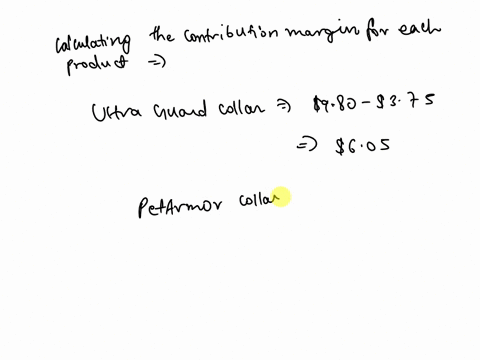 Calculating the contribution margin for each
product =>
Ultra Guard collar => $9.80 - $3.75
=> $6.05
PetArmor collar